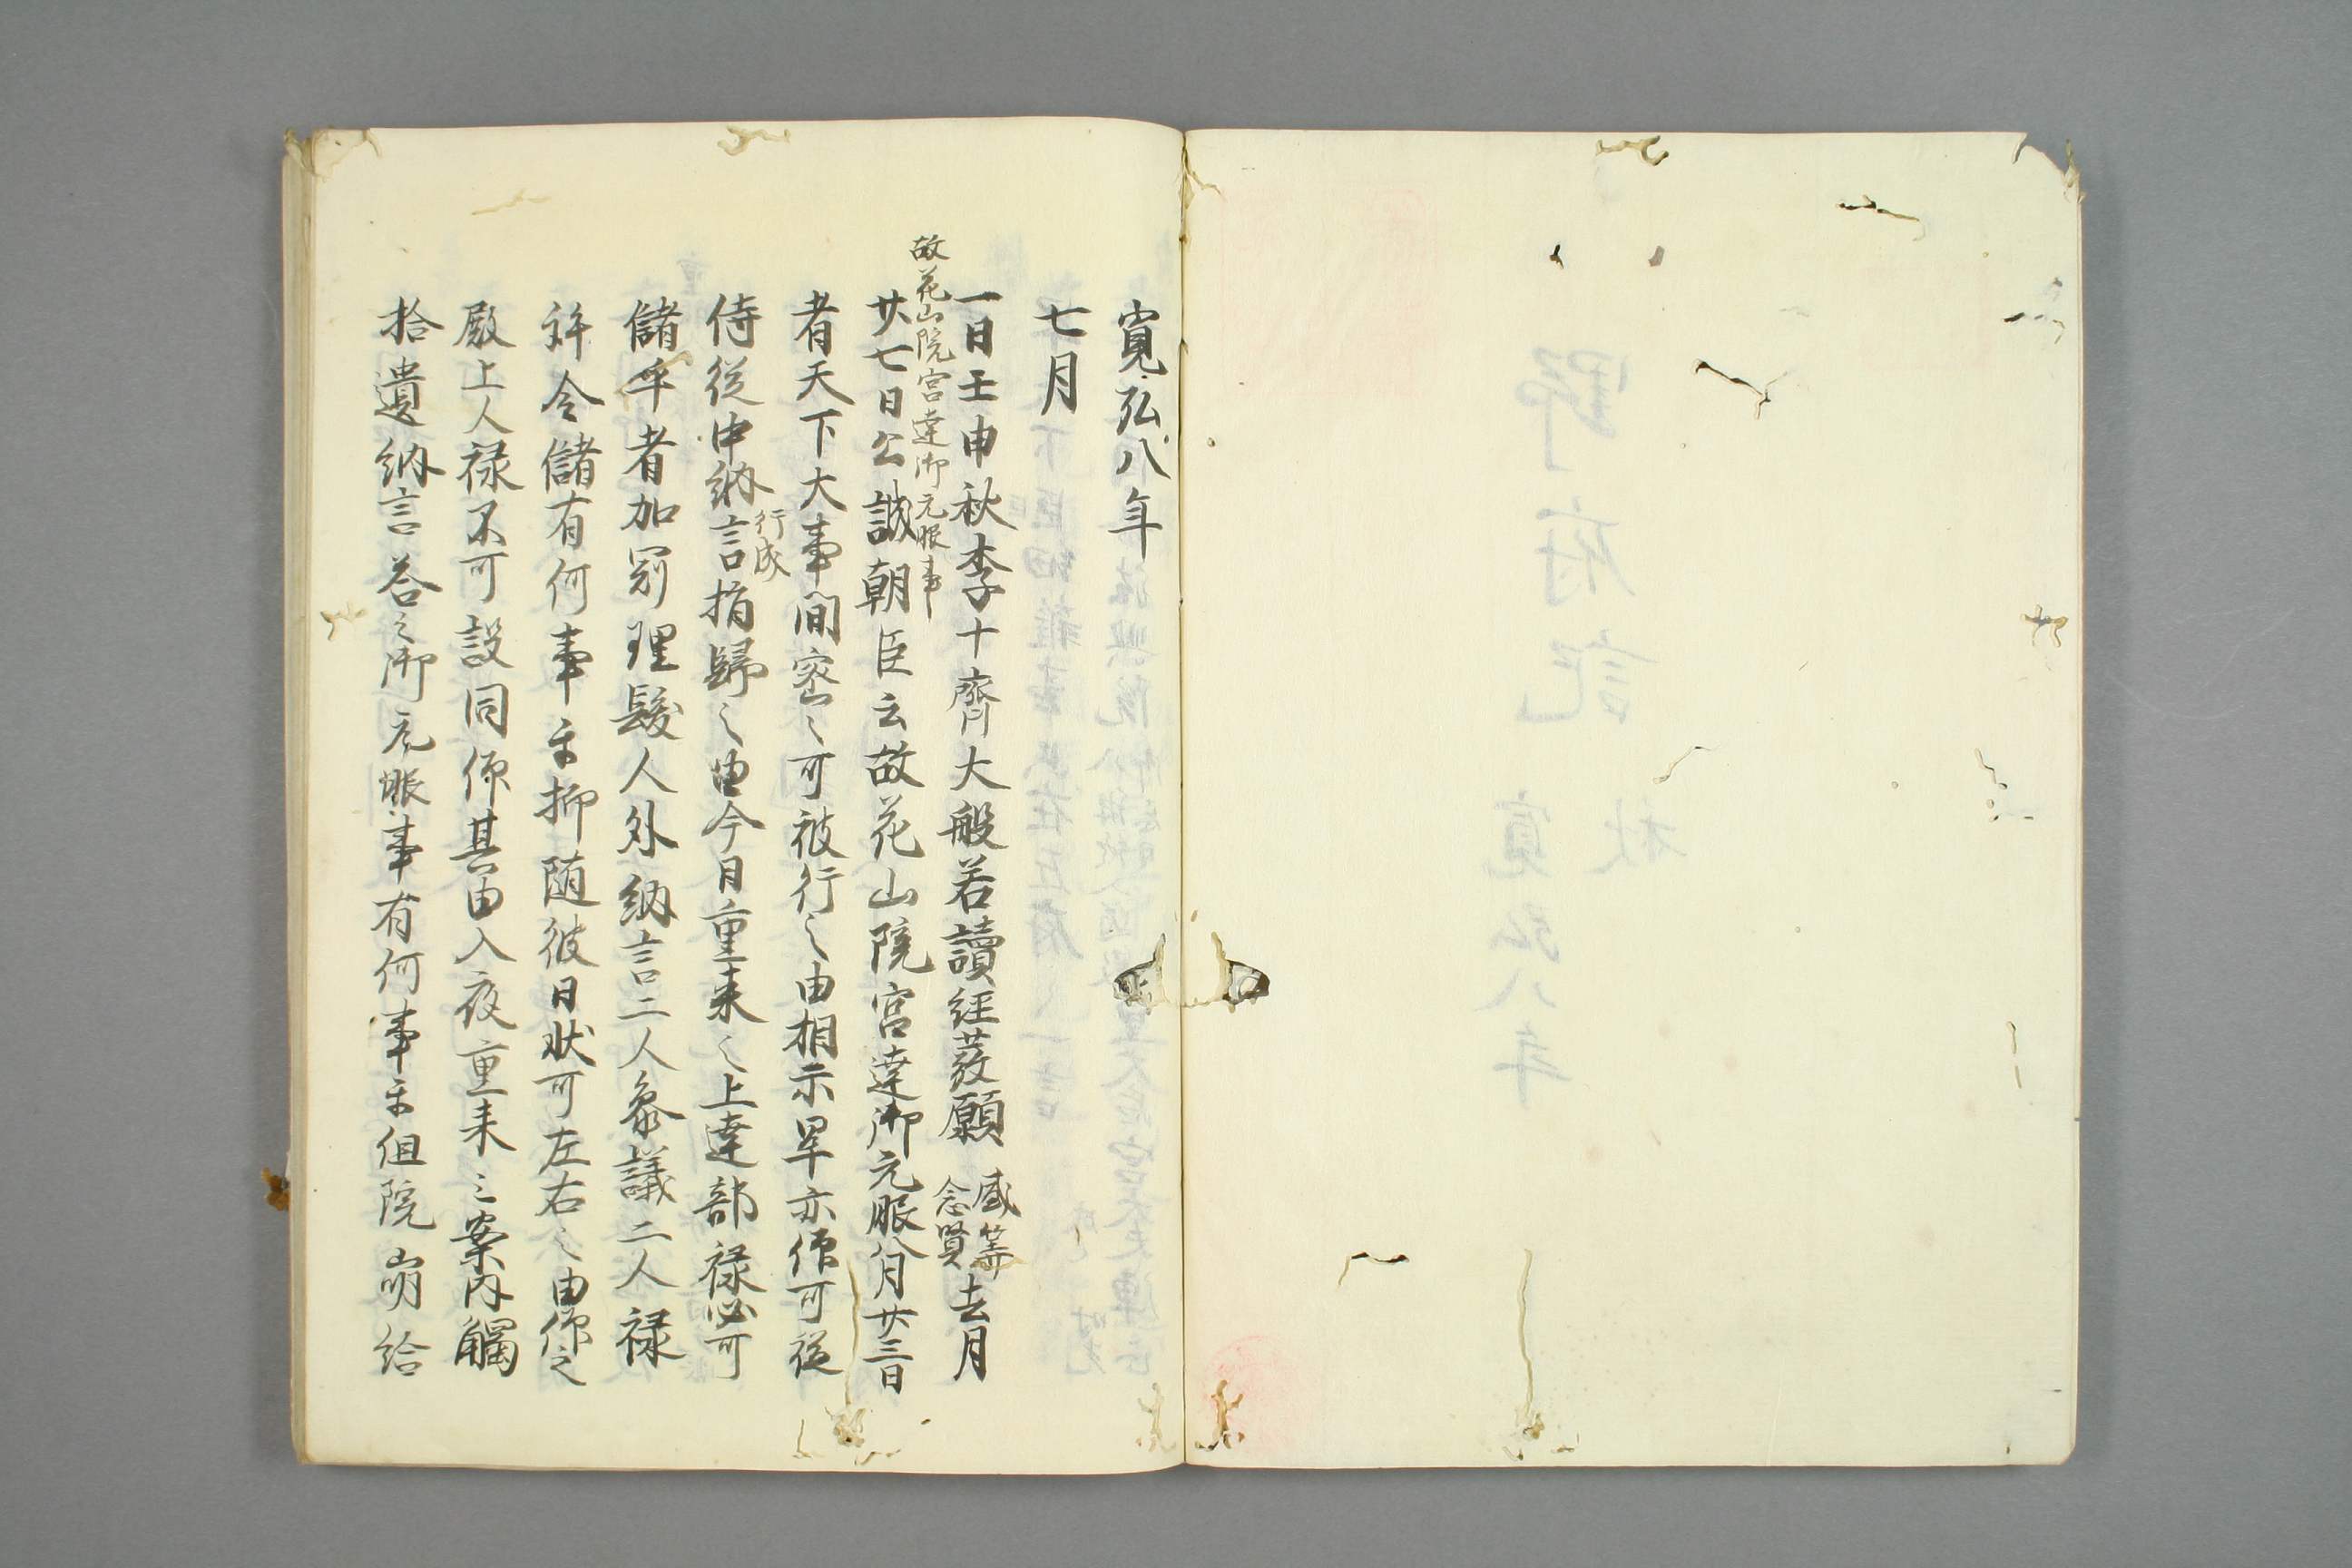 寛弘八年
七月
故花山院宮達御元服事
一日壬申秋季十齊大般若讀経發願 盛筭 念賢 去月
廿七日公誠朝臣云故花山院宮達御元服八月廿三日
者天下大事間密々可被行之由相示畢亦仰可従
侍従中納言 行成 指歸之由今月重来云上達部禄必可
儲乎者加冠理髪人外納言二人参議二人禄
許令儲有何事乎抑随彼日状可左右之由仰之
殿上人禄不可設同仰其由入夜重来云案内觸
拾遺納言答云御元服事有何事乎但院崩給
野府記
秋
寛弘八年